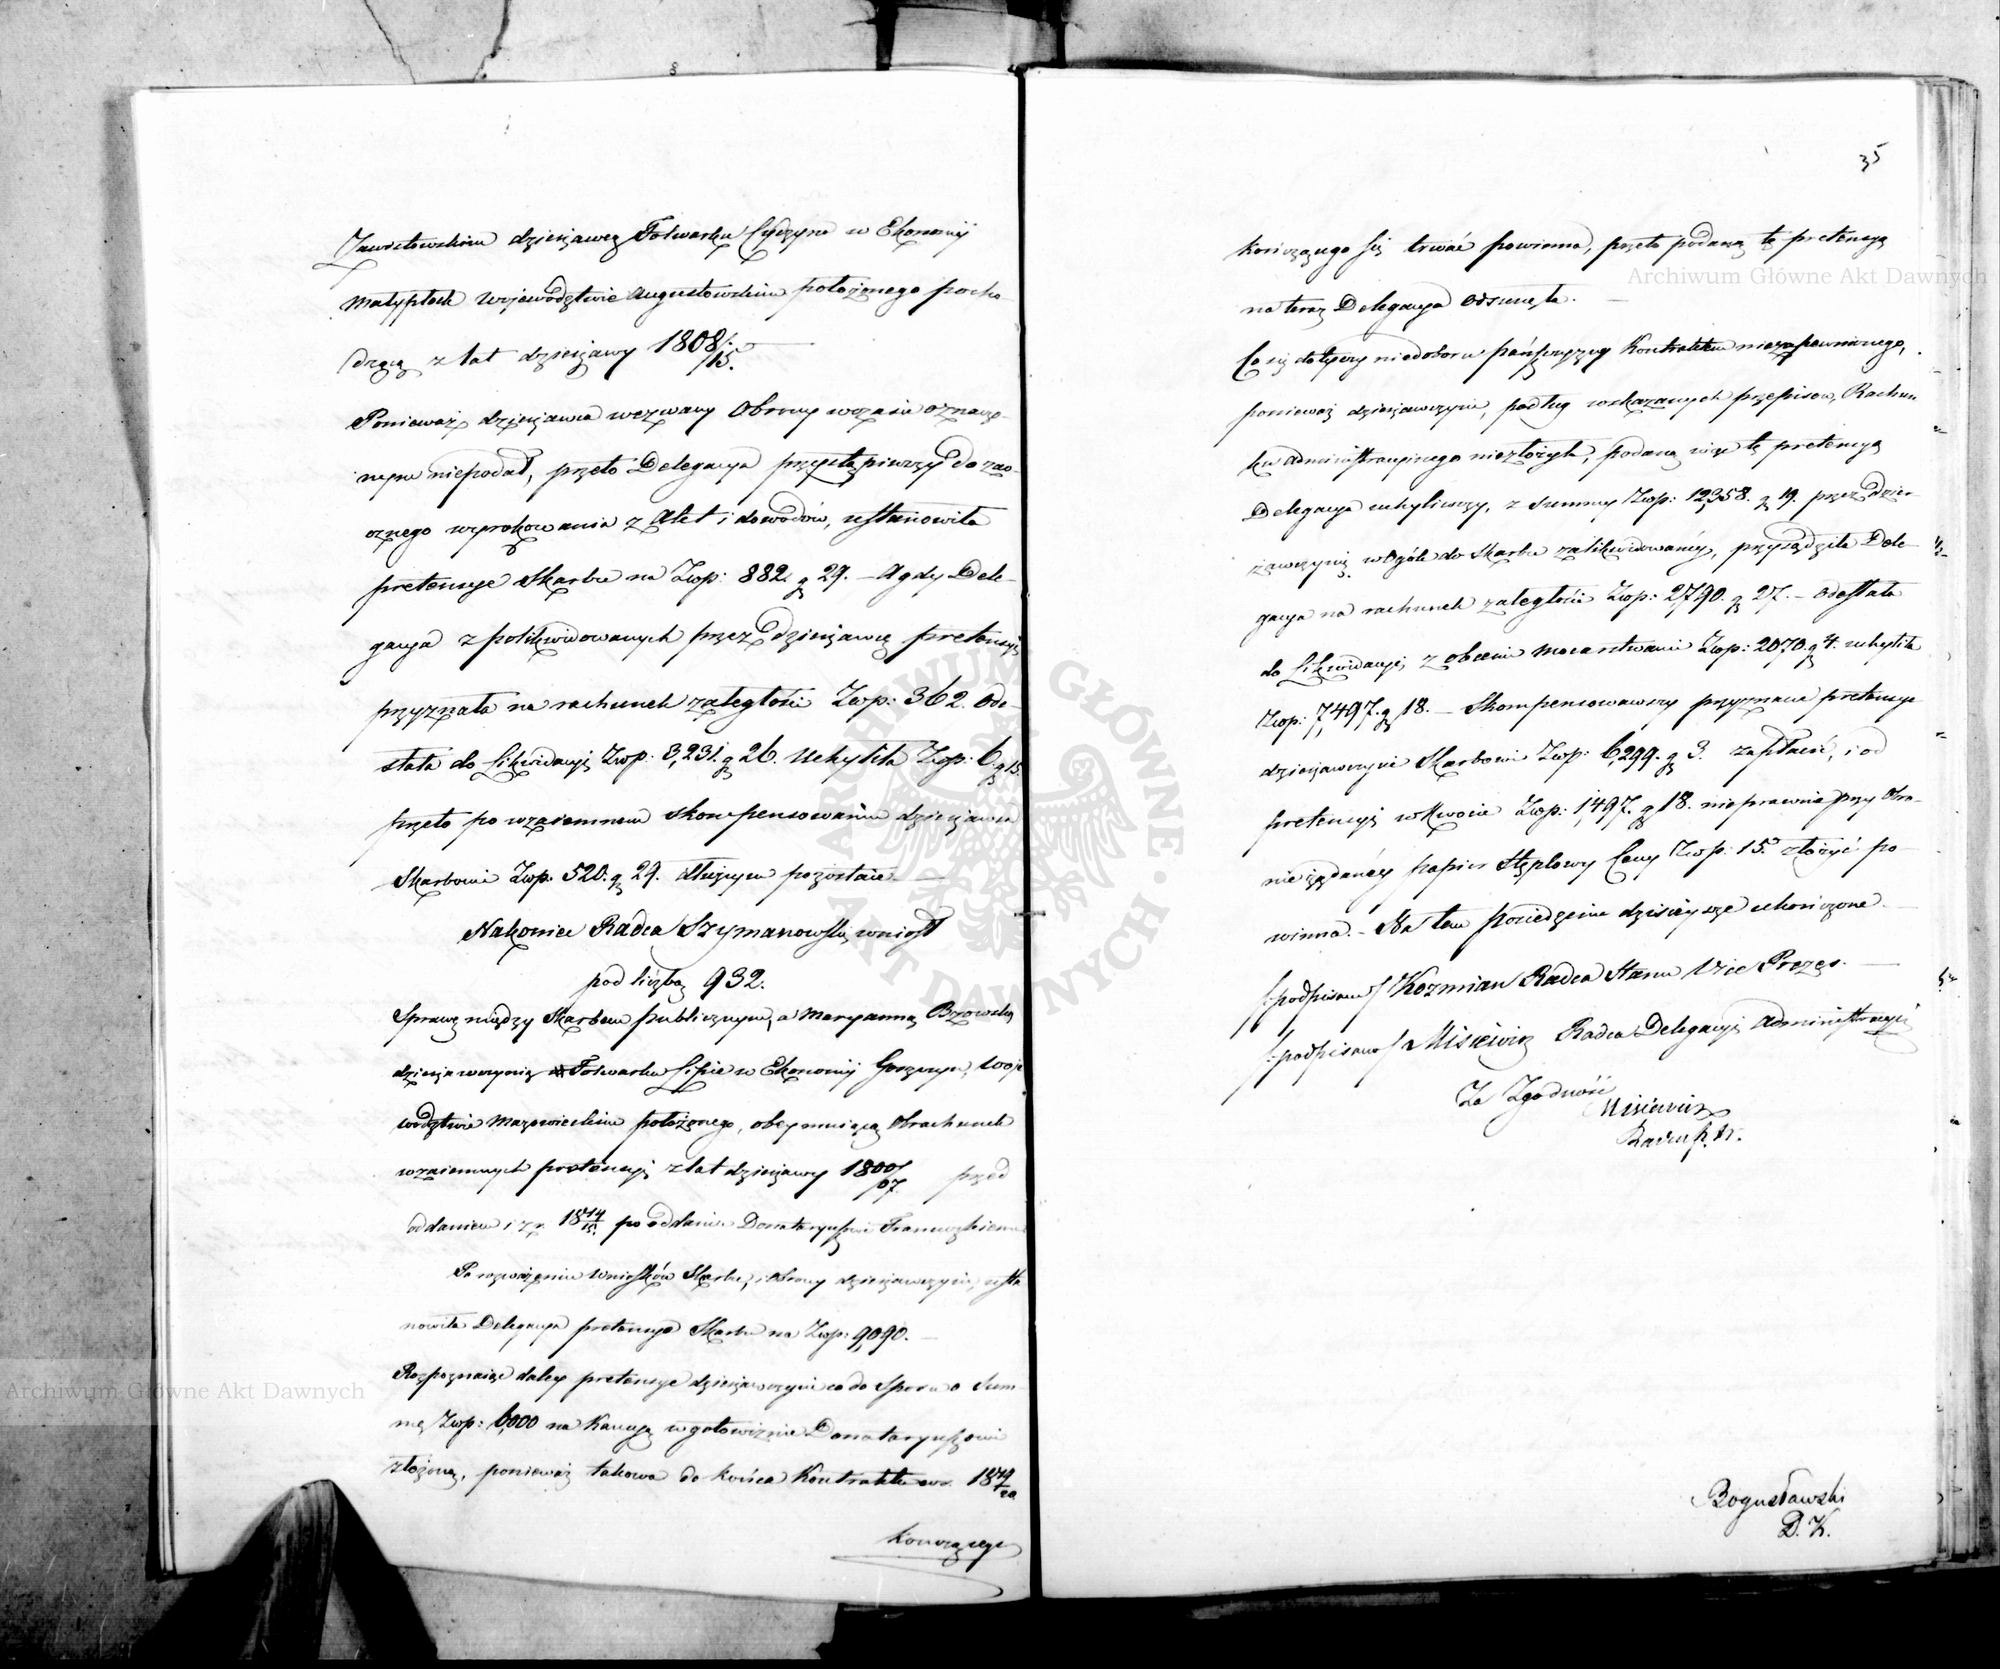 Jawostowskim dzierżawcą Folwarku Cydzyna w Ekonomij
Małypłock Wojewodztwie Augustowskim położonego pocho-
dzącą z lat dzierżawy 1808/15.
Ponieważ dzierżawca wezwany Obrony wczasie oznaczo-
nym niepodał, przeto Delegacya przystąpiwszy do zao-
cznego wyrokowania z Akt i dowodów, ustanowiła
pretensye Skarbu na Złłp: 882 g 29. – A gdy Dele-
gacya z polikwidowanych przez dzierżawcę pretensyi
przyznała na rachunek zaległości Złłp: 362. Ode-
słała do Likwidacyi Złłp: 3,231. g 26. Uchyliła Złłp: 6 g 15.
przeto po wzaiemnem skompensowaniu dzierżawca
Skarbowi Złłp. 520. g 29. dłużnym pozostaie. –
Nakoniec Radca Szymanowski wniosł
pod liczbą 932.
Sprawę między Skarbem publicznym, a Maryanną Bzowską
dzierżawczynią Folwarku Lipie w Ekonomij Goszczyn, Woje
wodztwie Mazowieckim położonego, obeymuiącą Obrachunek
wzaiemnych pretensyi z lat dzierżawy 1800/07. przed
oddaniem i z r. 1814/15. po oddaniu Donataryuszowi Francuzkiemu
Po rozważeniu Wniosków Skarbu, i Obrony dzierżawczyni, usta
nowiła Delegacya pretensye Skarbu na Złłp: 9,090. –
Rozpoznaiąc daley pretensye dzierżawczyni co do Sporu o Sum-
mę Złłp: 6,000 na Kaucyą w gotowiznie Donataryuszowi
złożoną, ponieważ takowa do końca Kontraktu w r. 1819/20
Kończącego
35
kończącego się trwać powinna, przeto podaną tę pretensyą
na teraz Delegacya odsunęła. –
Co się dotyczy niedoboru pańszczyzny Kontraktem niezapewnionego,
ponieważ dzierżawczyni, podług wskazanych przepisow, Rachun
ku administracyinego niezłożyła, podaną więc tę pretensyą
Delegacya uchyliwszy, z Summy Złłp: 12,358. g 19. przez dzier-
żawczynię wogóle do Skarbu zalikwidowaney, przysądziła Dele-
gacya na rachunek zaległości Złłp: 2,790. g 27. – Odesłała
do Likwidacyi z obcemi mocarstwami Złłp: 2,070. g 4. uchyliła
Złłp: 7,497. g 18. – Skompensowawszy przyznane pretensye
dzierżawczyni Skarbowi Złłp: 6,299. g 3. zapłacić, i od
pretensyi w Kwocie Złłp: 1,497. g 18. nieprawnie przy Obro-
nie żądaney papier Stęplowy Ceny Złłp: 15. złożyć po-
winna. – Na tem posiedzenie dzisieysze ukończone. –
/: podpisano / Kozmian Radca Stanu Vice Prezes. –
/: podpisano / Misiewicz Radca Delegacyi Administracyi
Za Zgodność
Misiewicz
Bogusławski
D. K.
Archiwum Główne Akt Dawnych
Archiwum Główne Akt Dawnych
ARCHIWUM GŁÓWNE AKT DAWNYCH